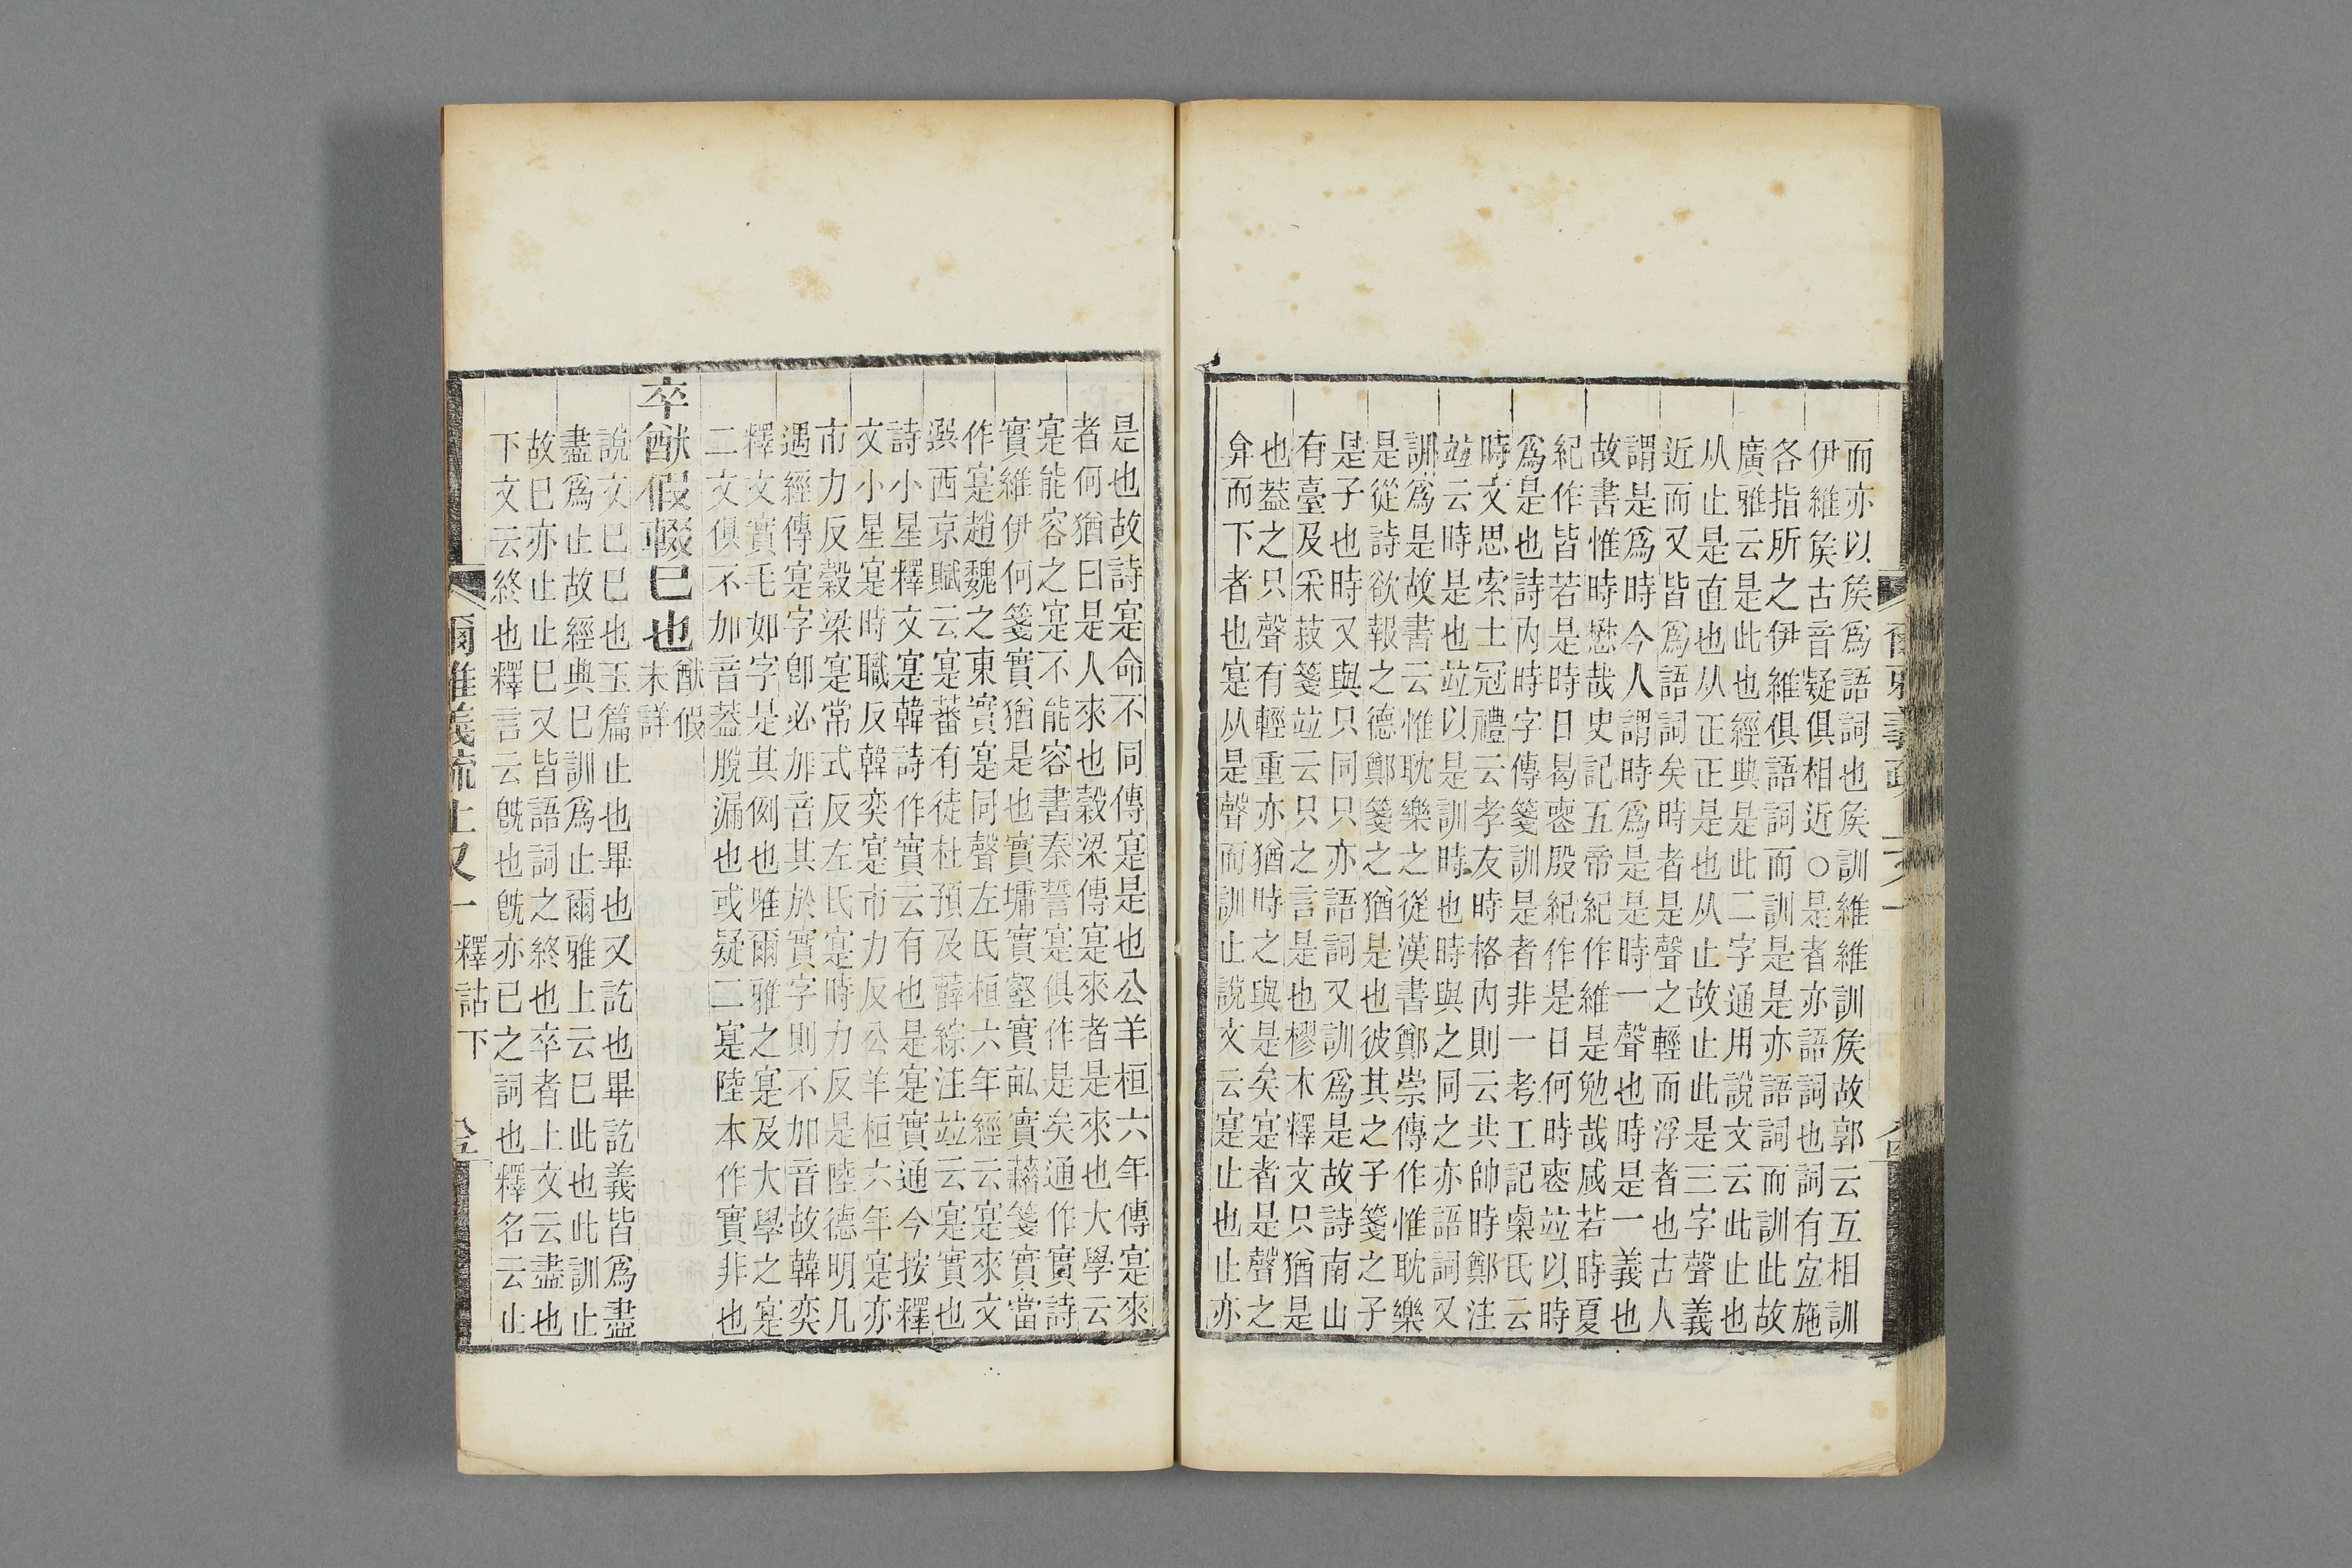 而亦以矦爲語詞也矦訓維維訓矦故郭云互相訓
伊維矦古音疑俱相近○是者亦語詞也詞有宐施
各指所之伊維俱語詞而訓是是亦語詞而訓此故
廣雅云是此也經典是此二字通用說文云此止也
从止是直也从正正是也从止故止此是三字聲義
近而又皆爲語詞矣時者是聲之輕而浮者也古人
謂是爲時今人謂時爲是是時一聲也時是一義也
故書惟時懋哉史記五帝紀作維是勉哉咸若時夏
紀作皆若是時日曷喪殷紀作是日何時喪竝以時
爲是也詩內時字傳箋訓是者非一考工記㮚氏云
時文思索士冠禮云孝友時格內則云共帥時鄭注
竝云時是也竝以是訓時也時與之同之亦語詞又
訓爲是故書云惟耽樂之從漢書鄭崇傳作惟耽樂
是從詩欲報之德鄭箋之猶是也彼其之子箋之子
是子也時又與只同只亦語詞又訓爲是故詩南山
有臺及采菽箋竝云只之言是也樛木釋文只猶是
也葢之只聲有輕重亦猶時之與是矣寔者是聲之
弇而下者也寔从是聲而訓止說文云寔止也止亦
爾雅義疏
是也故詩寔命不同傳寔是也公羊桓六年傳寔來
者何猶曰是人來也穀梁傳寔來者是來也大學云
寔能容之寔不能容書秦誓寔俱作是矣通作實詩
實維伊何箋實猶是也實墉實壑實畝實藉箋實當
作寔趙魏之東實寔同聲左氏桓六年經云寔來文
選西京賦云寔蕃有徒杜預及薛綜注竝云寔實也
詩小星釋文寔韓詩作實云有也是寔實通今按釋
文小星寔時職反韓奕寔市力反公羊桓六年寔亦
市力反穀梁寔常式反左氏寔時力反是陸德明凡
遇經傳寔字卽必加音其於實字則不加音故韓奕
釋文實毛如字是其例也唯爾雅之寔及大學之寔
二文俱不加音葢脫漏也或疑二寔陸本作實非也
卒猷假輟已也猷假未詳
說文巳巳也玉篇止也畢也又訖也畢訖義皆爲盡
盡爲止故經典巳訓爲止爾雅上云巳此也此訓止
故巳亦止止巳又皆語詞之終也卒者上文云盡也
下文云終也釋言云旣也旣亦已之詞也釋名云止
爾雅義疏上又一 釋詁下